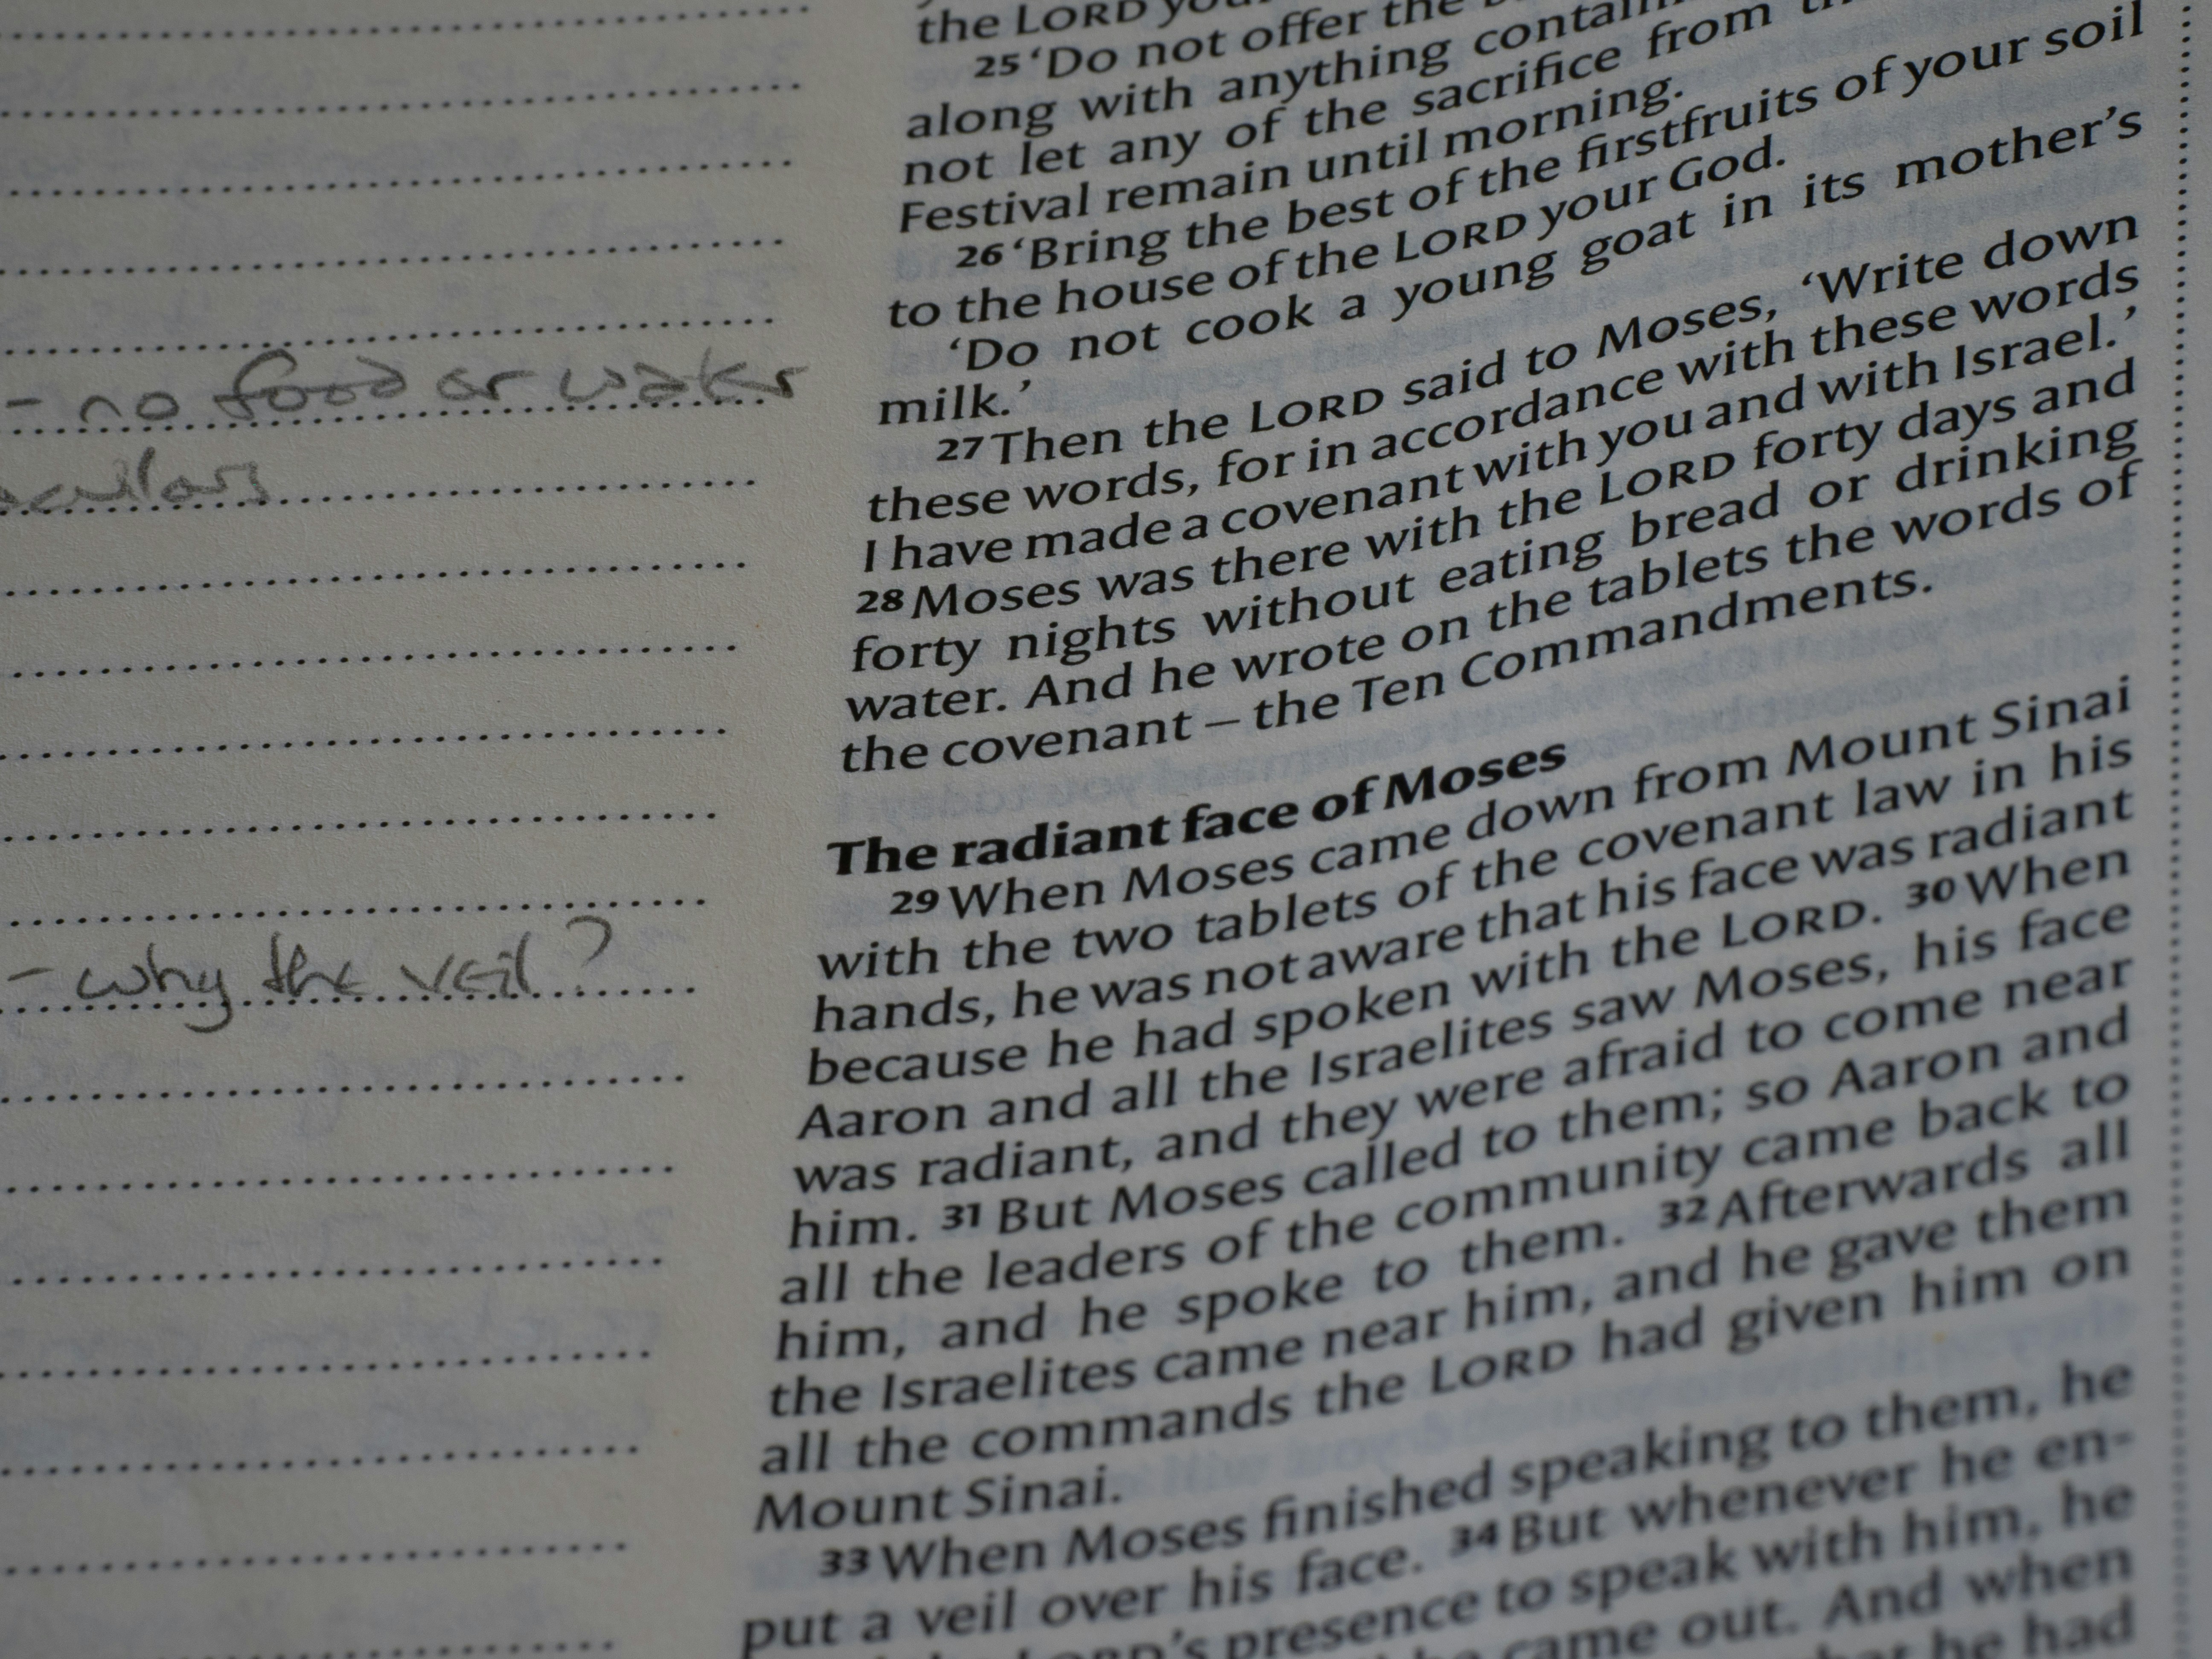 - no food or water
- why the veil?
the LORD
25 ‘Do not offer the
along with anything
not let any of the sacrifice from
Festival remain until morning.
26 ‘Bring the best of the firstfruits of your soil
to the house of the LORD your God.
‘Do not cook a young goat in its mother’s
milk.’
27 Then the LORD said to Moses, ‘Write down
these words, for in accordance with these words
I have made a covenant with you and with Israel.’
28 Moses was there with the LORD forty days and
forty nights without eating bread or drinking
water. And he wrote on the tablets the words of
the covenant – the Ten Commandments.
The radiant face of Moses
29 When Moses came down from Mount Sinai
with the two tablets of the covenant law in his
hands, he was not aware that his face was radiant
because he had spoken with the LORD. 30 When
Aaron and all the Israelites saw Moses, his face
was radiant, and they were afraid to come near
him. 31 But Moses called to them; so Aaron and
all the leaders of the community came back to
him, and he spoke to them. 32 Afterwards all
the Israelites came near him, and he gave them
all the commands the LORD had given him on
Mount Sinai.
33 When Moses finished speaking to them, he
put a veil over his face. 34 But whenever he en-
LORD’s presence to speak with him, he
came out. And when
he had